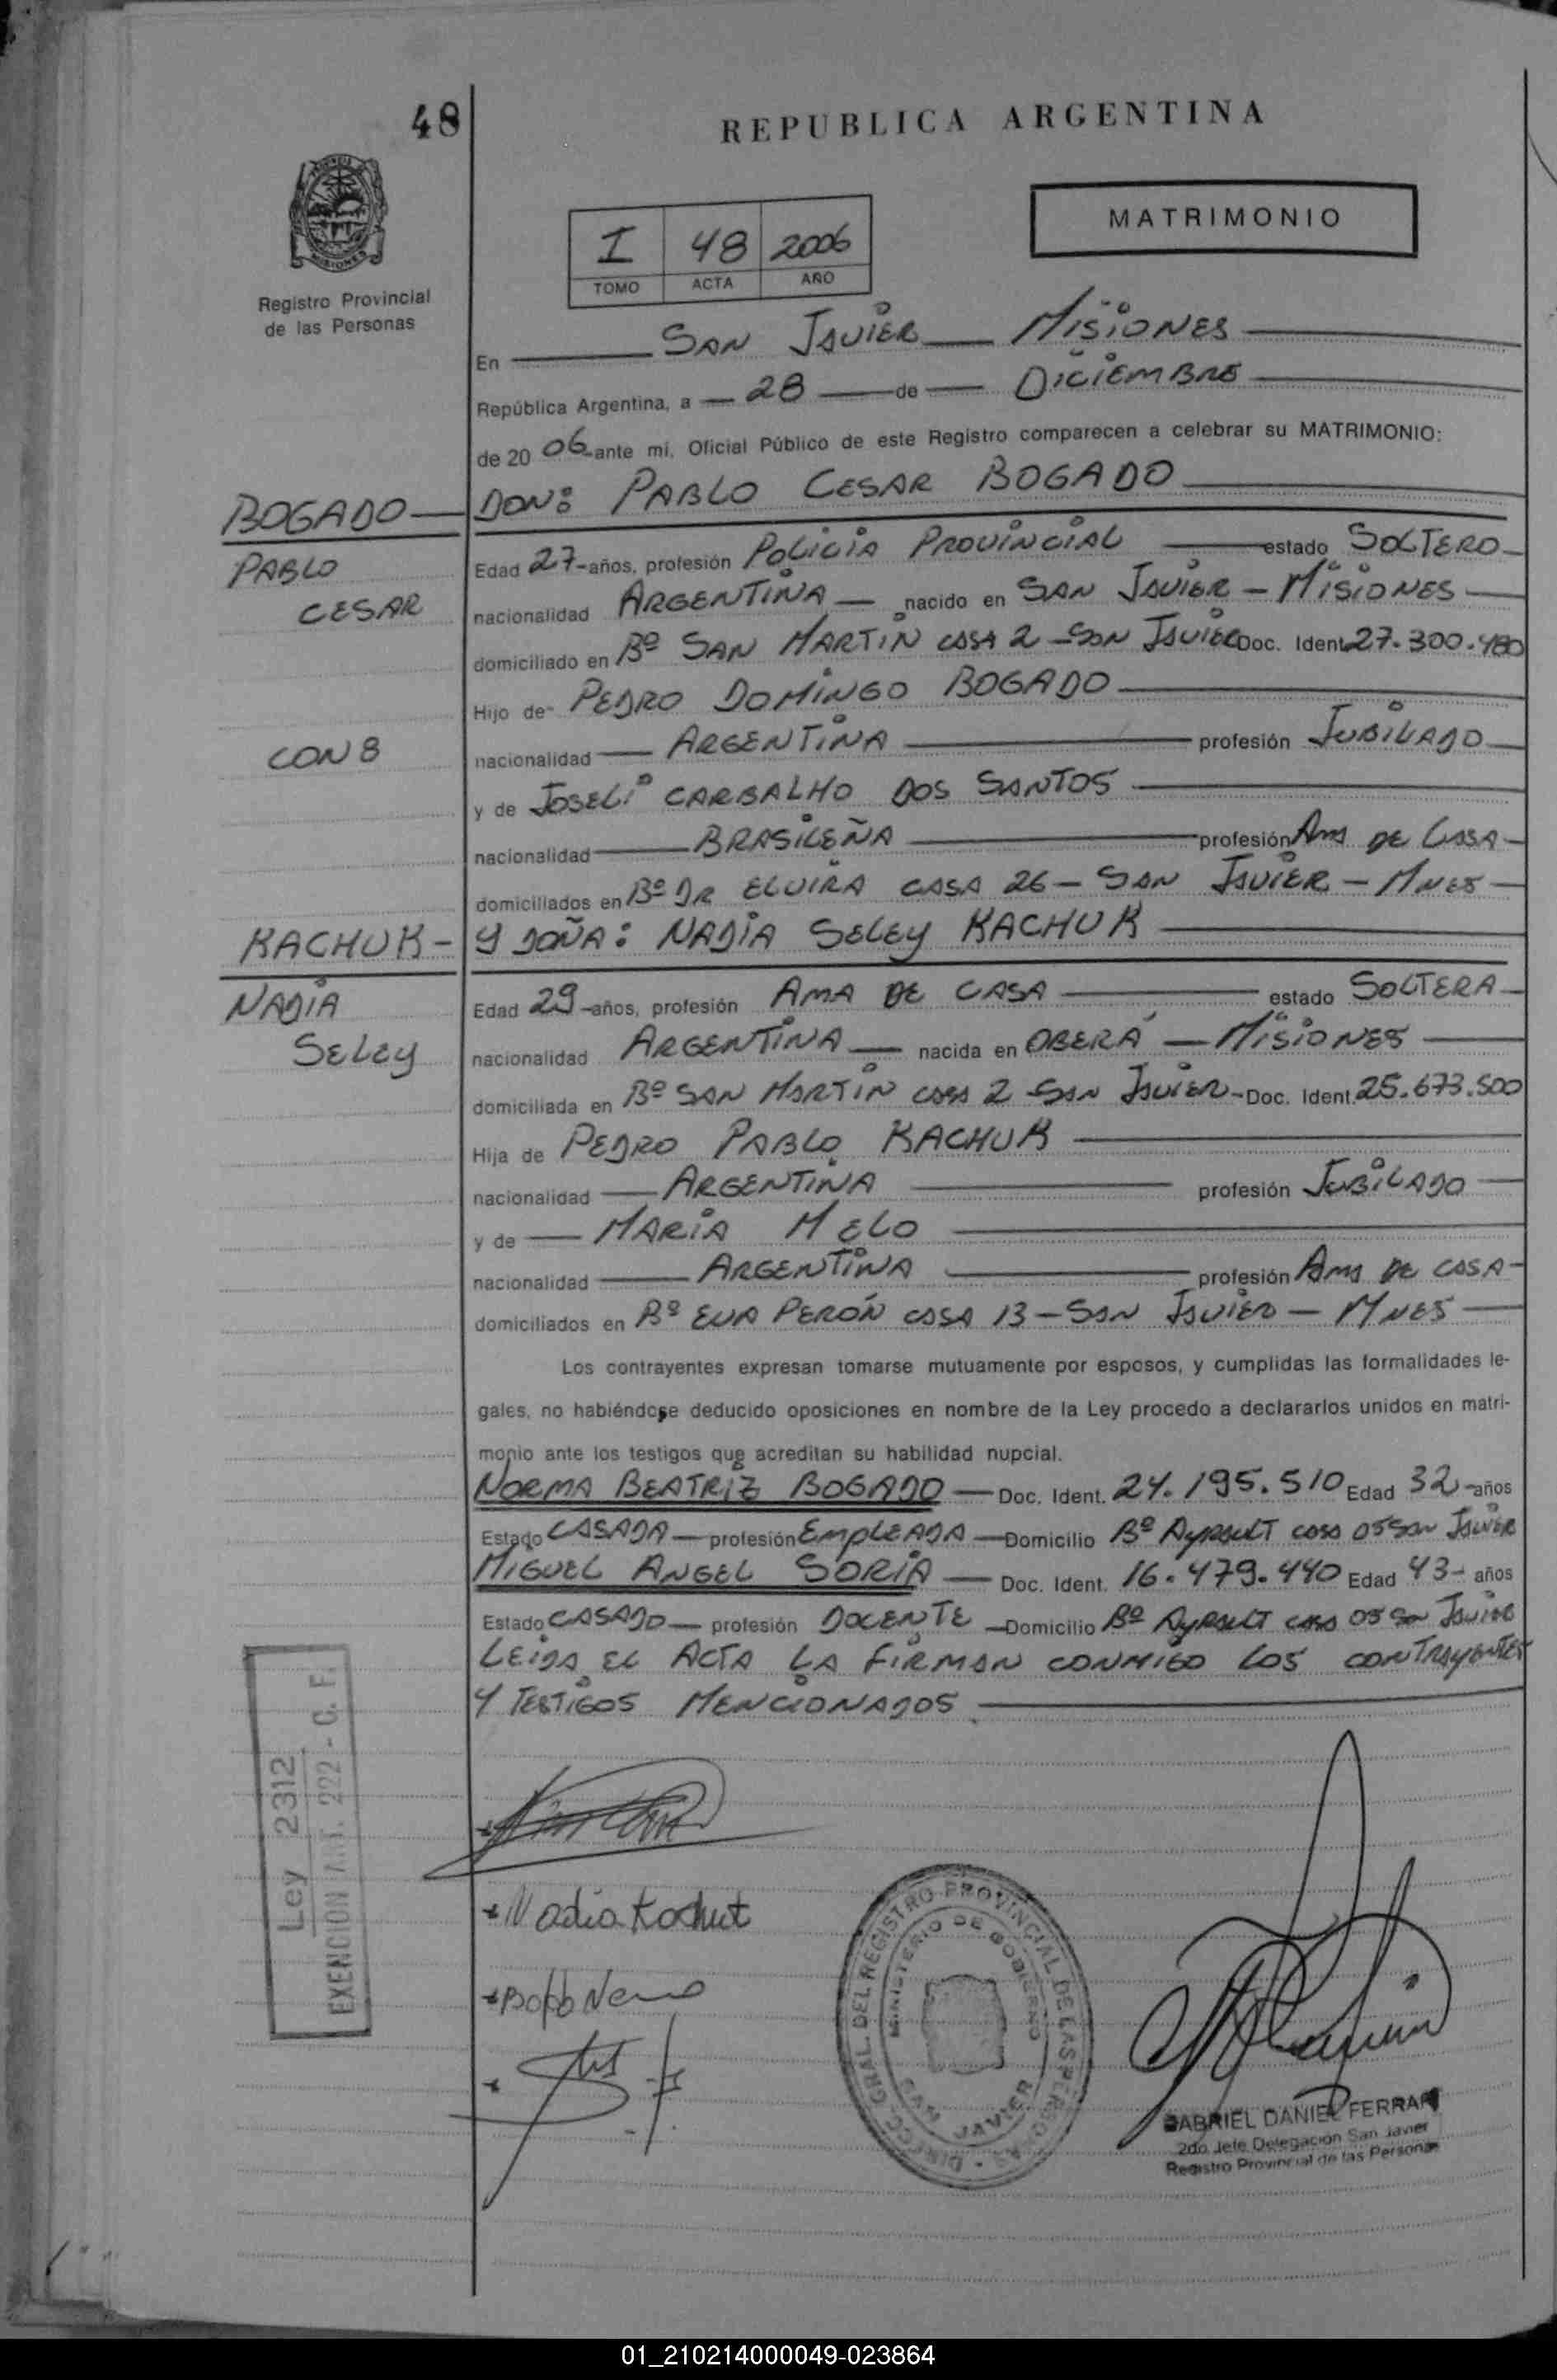 48
REPUBLICA ARGENTINA
MATRIMONIO
I 48 2006
TOMO ACTA AÑO
Registro Provincial
de las Personas
En SAN JAVIER MISIONES
República Argentina, a 28 de DICIEMBRE
de 20 06 ante mi, Oficial Público de este Registro comparecen a celebrar su MATRIMONIO:
BOGADO DON: PABLO CESAR BOGADO
PABLO Edad 27 años, profesión POLICIA PROVINCIAL estado SOLTERO
CESAR nacionalidad ARGENTINA nacido en SAN JAVIER - MISIONES
domiciliado en Bº SAN MARTIN CASA 2 - SAN JAVIER Doc. Ident. 27.300.480
Hijo de PEDRO DOMINGO BOGADO
CON 8 nacionalidad ARGENTINA profesión JUBILADO
y de JOSELI CARBALHO DOS SANTOS
nacionalidad BRASILEÑA profesión AMA DE CASA
domiciliados en Bº DR ELVIRA CASA 26 - SAN JAVIER - MNES
KACHUK - Y DOÑA: NADIA SELEY KACHUK
NADIA Edad 29 años, profesión AMA DE CASA estado SOLTERA
SELEY nacionalidad ARGENTINA nacida en OBERÁ - MISIONES
domiciliada en Bº SAN MARTIN CASA 2 SAN JAVIER - Doc. Ident. 25.673.500
Hija de PEDRO PABLO KACHUK
nacionalidad ARGENTINA profesión JUBILADO
y de MARIA MELO
nacionalidad ARGENTINA profesión AMA DE CASA
domiciliados en Bº EVA PERÓN CASA 13 - SAN JAVIER - MNES
Los contrayentes expresan tomarse mutuamente por esposos, y cumplidas las formalidades le-
gales, no habiéndose deducido oposiciones en nombre de la Ley procedo a declararlos unidos en matri-
monio ante los testigos que acreditan su habilidad nupcial.
NORMA BEATRIZ BOGADO Doc. Ident. 24.195.510 Edad 32 años
Estado CASADA profesión EMPLEADA Domicilio Bº AYRAULT CASA 05 SAN JAVIER
MIGUEL ANGEL SORIA Doc. Ident. 16.479.440 Edad 43 años
Estado CASADO profesión DOCENTE Domicilio Bº AYRAULT CASA 05 SAN JAVIER
LEIDA EL ACTA LA FIRMAN CONMIGO LOS CONTRAYENTES
Y TESTIGOS MENCIONADOS
Ley 2312
EXENCION ART. 222 - C. F.
Nadia Kachuk
DIRECC. GRAL. DEL REGISTRO PROVINCIAL DE LAS PERSONAS
MINISTERIO DE GOBIERNO
SAN JAVIER
GABRIEL DANIEL FERRARI
2do. Jefe Delegación San Javier
Registro Provincial de las Personas
01_210214000049-023864